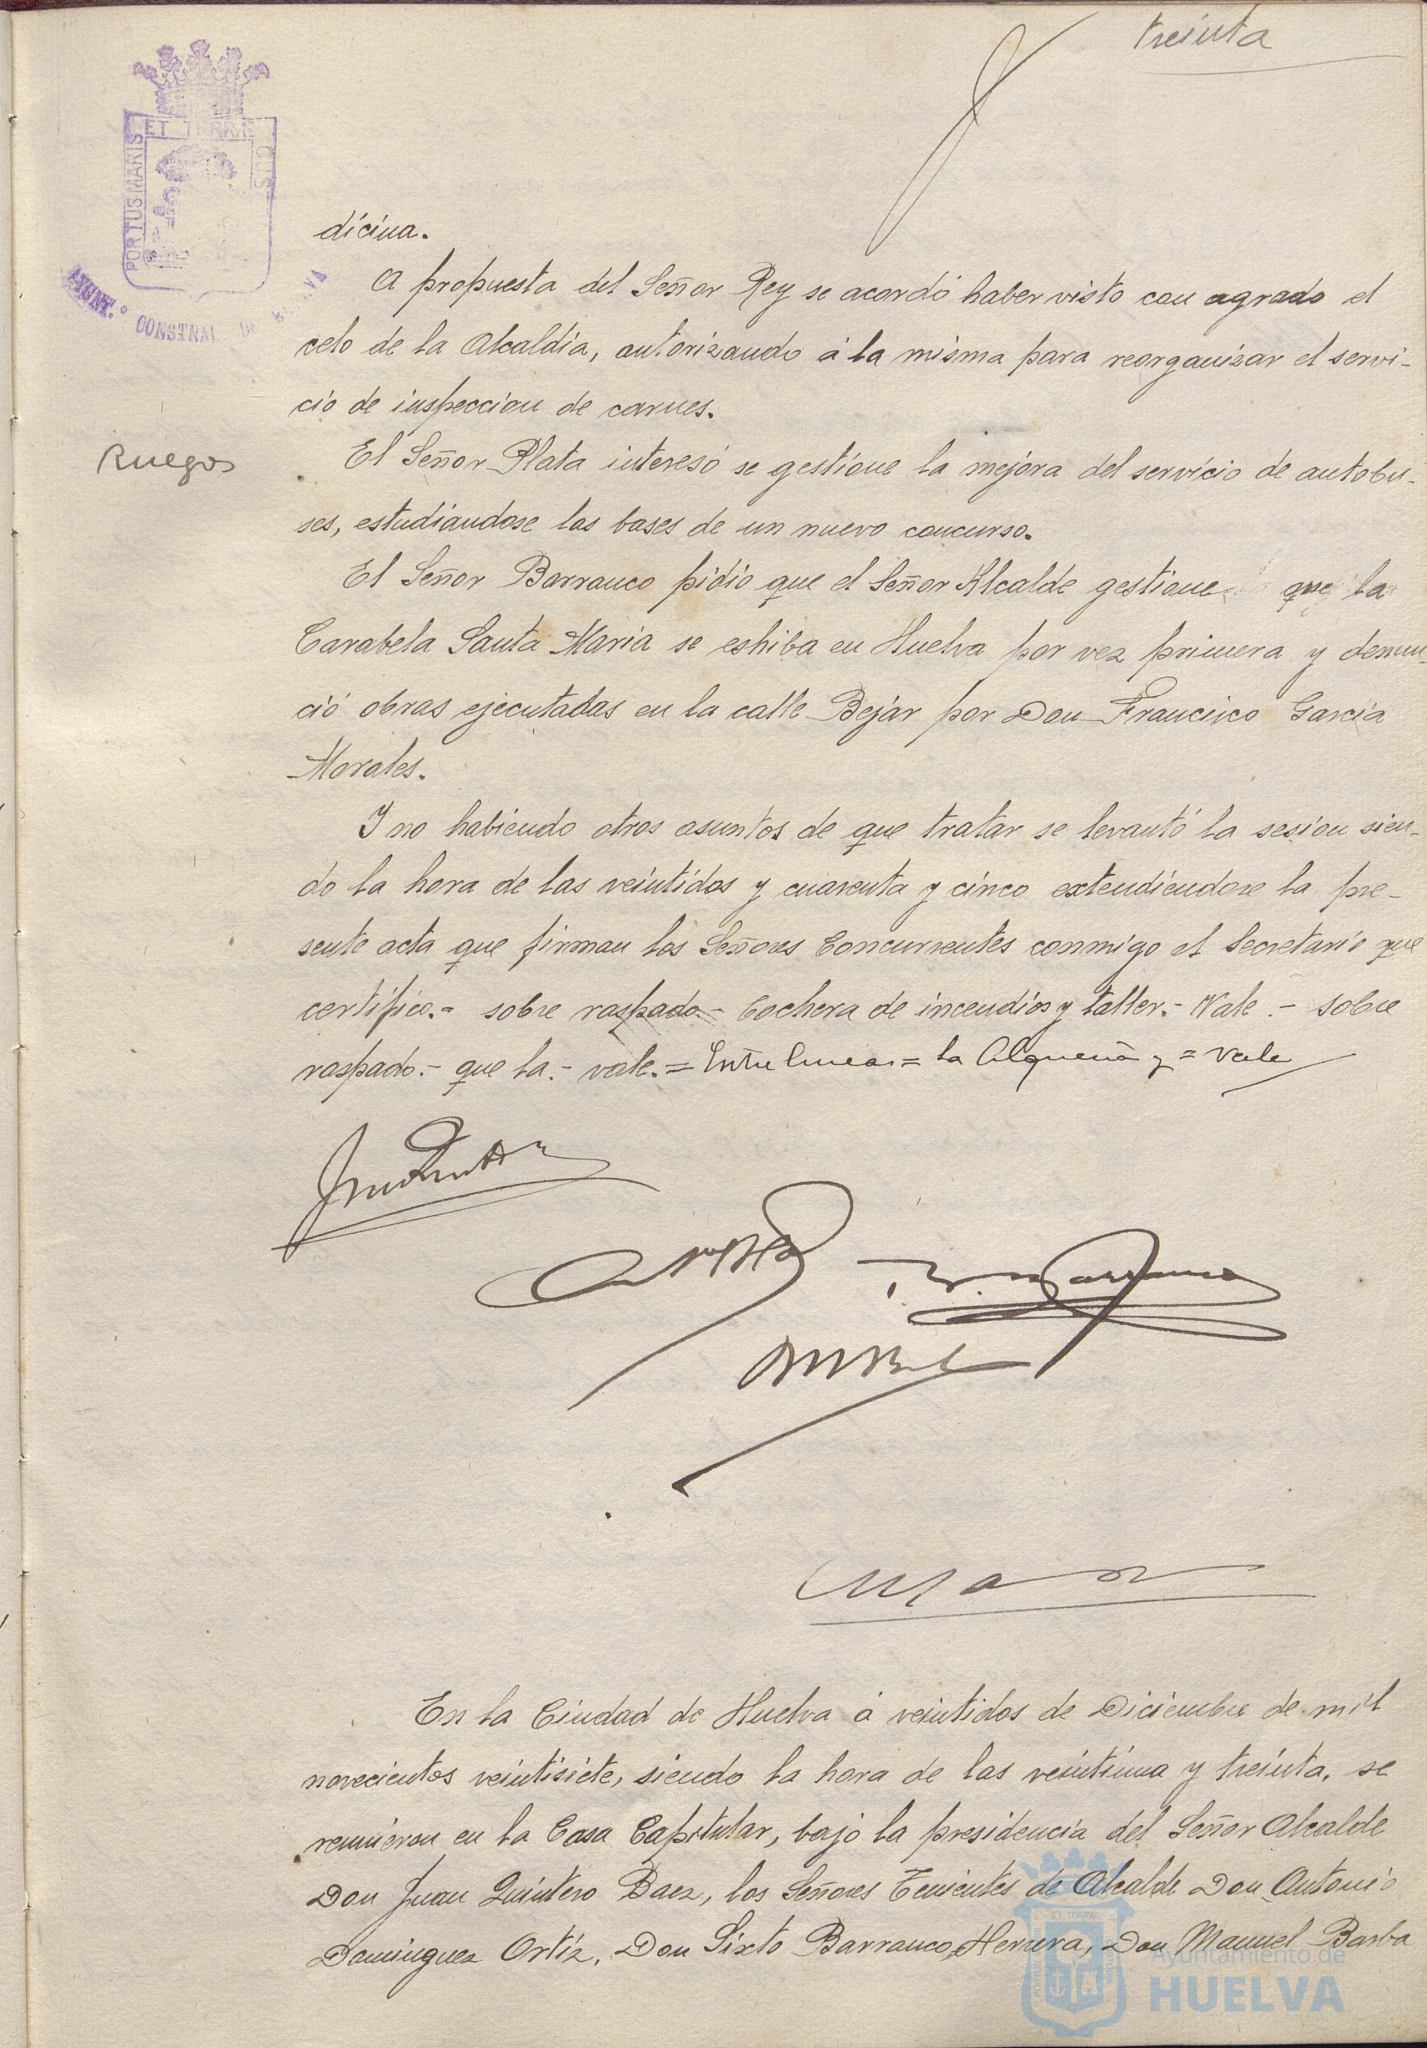 treinta
PORTUS MARIS ET TERRAE CUS
AYUNT.º CONSTNAL DE HUELVA
dicina.
A propuesta del Señor Rey se acordó haber visto con agrado el
celo de la Alcaldia, autorizando á la misma para reorganizar el servi-
cio de inspeccion de carnes.
Ruegos
El Señor Plata interesó se gestione la mejora del servicio de autobu-
ses, estudiandose las bases de un nuevo concurso.
El Señor Barranco pidio que el Señor Alcalde gestione que la
Carabela Santa Maria se eshiba en Huelva por vez primera y denun
ció obras ejecutadas en la calle Bejar por Don Francisco Garcia
Morales.
Y no habiendo otros asuntos de que tratar se levantó la sesion sien-
do la hora de las veintidos y cuarenta y cinco extendiendose la pre-
sente acta que firman los Señores Concurrentes conmigo el Secretario que
certifico.- sobre raspado - Cochera de incendios y taller.- Vale.- sobre
raspado.- que la.- vale.= Entre lineas = la Alquería y = vale
En la Ciudad de Huelva á veintidos de Diciembre de mil
novecientos veintisiete, siendo la hora de las veintiuna y treinta, se
reunieron en la Casa Capitular, bajo la presidencia del Señor Alcalde
Don Juan Quintero Baez, los Señores Tenientes de Alcalde Don Antonio
Dominguez Ortiz, Don Sixto Barranco Herrera, Don Manuel Barba
Ayuntamiento de
HUELVA